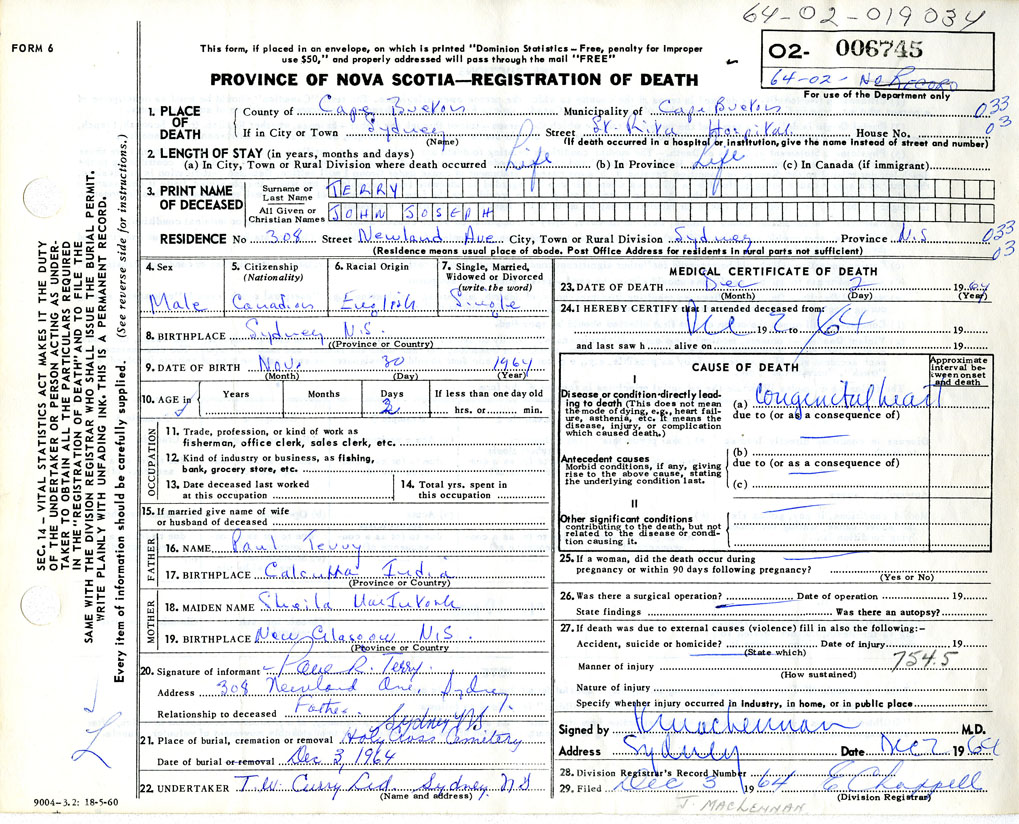 64-02-019034
FORM 6
This form, if placed in an envelope, on which is printed "Dominion Statistics—Free, penalty for improper
use $50," and properly addressed will pass through the mail "FREE"
PROVINCE OF NOVA SCOTIA—REGISTRATION OF DEATH
02- 006745
64-02- No RECORD
For use of the Department only
1. PLACE OF DEATH County of Cape Breton Municipality of Cape Breton 033
If in City or Town Sydney Street St. Rita Hospital House No. 03
(Name) (If death occurred in a hospital or institution, give the name instead of street and number)
2. LENGTH OF STAY (in years, months and days)
(a) In City, Town or Rural Division where death occurred Life (b) In Province Life (c) In Canada (if immigrant)
3. PRINT NAME OF DECEASED Surname or Last Name TERRY
All Given or Christian Names JOHN JOSEPH
RESIDENCE No 308 Street Newland Ave City, Town or Rural Division Sydney Province N.S 033
03
(Residence means usual place of abode. Post Office Address for residents in rural parts not sufficient)
4. Sex Male
5. Citizenship (Nationality) Canadian
6. Racial Origin English
7. Single, Married, Widowed or Divorced (write the word) Single
8. BIRTHPLACE Sydney N.S.
(Province or Country)
9. DATE OF BIRTH Nov. 30 1964
(Month) (Day) (Year)
10. AGE in Years Months Days 2 If less than one day old
hrs. or min.
OCCUPATION
11. Trade, profession, or kind of work as
fisherman, office clerk, sales clerk, etc.
12. Kind of industry or business, as fishing,
bank, grocery store, etc.
13. Date deceased last worked
at this occupation
14. Total yrs. spent in
this occupation
15. If married give name of wife
or husband of deceased
FATHER
16. NAME Paul Terry
17. BIRTHPLACE Calcutta India
(Province or Country)
MOTHER
18. MAIDEN NAME Sheila
19. BIRTHPLACE New Glasgow N.S.
(Province or Country)
20. Signature of informant Paul R. Terry.
Address 308 Newland Ave, Sydney.
Relationship to deceased Father.
Sydney NS
21. Place of burial, cremation or removal Holy Cross Cemetery
Date of burial or removal Dec 3, 1964
22. UNDERTAKER T.W. Curry Ltd. Sydney, NS
(Name and address)
9004-3.2: 18-5-60
MEDICAL CERTIFICATE OF DEATH
23. DATE OF DEATH Dec 2 1964
(Month) (Day) (Year)
24. I HEREBY CERTIFY that I attended deceased from:
Dec 19 2 to /64 19
and last saw h alive on 19
CAUSE OF DEATH
Approximate interval between onset and death
I
Disease or condition directly leading to death (This does not mean the mode of dying, e.g., heart failure, asthenia, etc. It means the disease, injury, or complication which caused death.)
(a) Congenital heart
due to (or as a consequence of)
Antecedent causes
Morbid conditions, if any, giving rise to the above cause, stating the underlying condition last.
(b)
due to (or as a consequence of)
(c)
II
Other significant conditions
contributing to the death, but not related to the disease or condition causing it.
25. If a woman, did the death occur during
pregnancy or within 90 days following pregnancy?
(Yes or No)
26. Was there a surgical operation? Date of operation 19
State findings Was there an autopsy?
27. If death was due to external causes (violence) fill in also the following:—
Accident, suicide or homicide? Date of injury 19
(State which)
Manner of injury 754.5
(How sustained)
Nature of injury
Specify whether injury occurred in industry, in home, or in public place
Signed by MacLennan M.D.
Address Sydney Date Dec 2 1964
28. Division Registrar's Record Number
29. Filed Dec 3 1964 E Chappell
(Division Registrar)
J. MACLENNAN
SEC. 14 – VITAL STATISTICS ACT MAKES IT THE DUTY
OF THE UNDERTAKER OR PERSON ACTING AS UNDER-
TAKER TO OBTAIN ALL THE PARTICULARS REQUIRED
IN THE "REGISTRATION OF DEATH" AND TO FILE THE
SAME WITH THE DIVISION REGISTRAR WHO SHALL ISSUE THE BURIAL PERMIT.
WRITE PLAINLY WITH UNFADING INK. THIS IS A PERMANENT RECORD.
Every item of information should be carefully supplied. (See reverse side for instructions.)